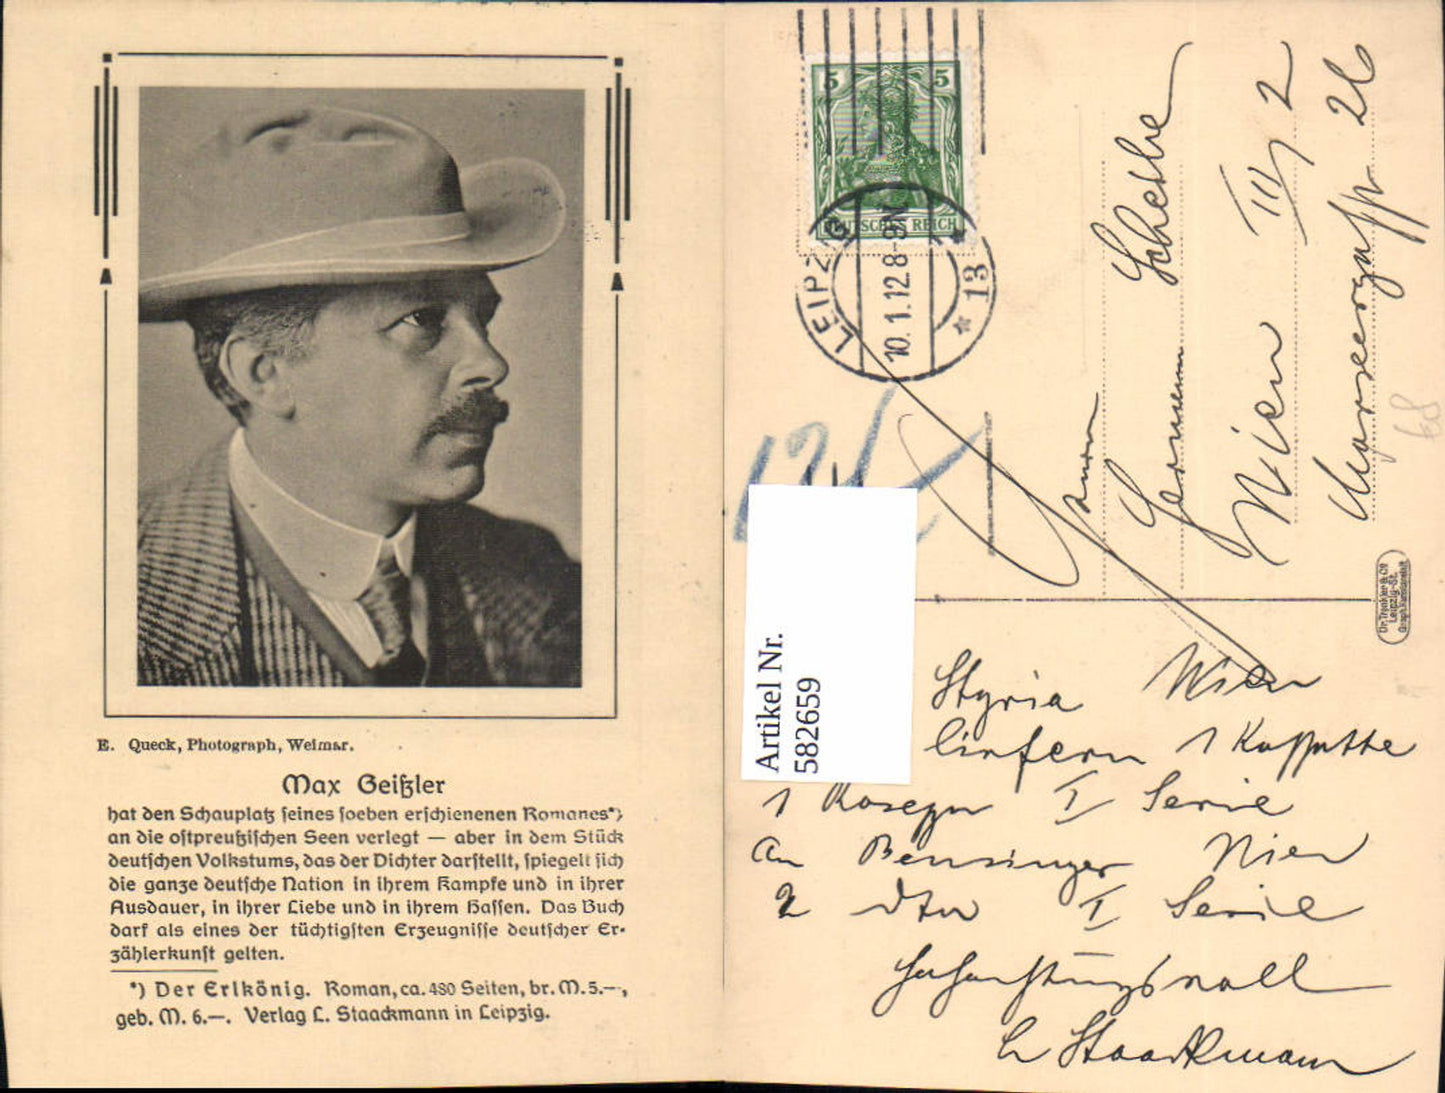 E. Queck, Photograph, Weimar.
Max Geißler
hat den Schauplatz seines soeben erschienenen Romanes*)
an die ostpreußischen Seen verlegt — aber in dem Stück
deutschen Volkstums, das der Dichter darstellt, spiegelt sich
die ganze deutsche Nation in ihrem Kampfe und in ihrer
Ausdauer, in ihrer Liebe und in ihrem Hassen. Das Buch
darf als eines der tüchtigsten Erzeugnisse deutscher Er-
zählerkunst gelten.
*) Der Erlkönig. Roman, ca. 480 Seiten, br. M. 5.—,
geb. M. 6.—. Verlag L. Staackmann in Leipzig.
5 5
DEUTSCHES REICH
LEIPZIG
10.1.12.8-9N
* 13 *
Artikel Nr.
582659
Herrn
Hermann
Wien III/2
26
68
Dr. Trenkler & Co
Leipzig-St.
Graph. Kunstanstalt
Styria Wien
liefern 1
1 I Serie
an Bensinger Wien
2 dto I Serie
Hochachtungsvoll
L Staackmann